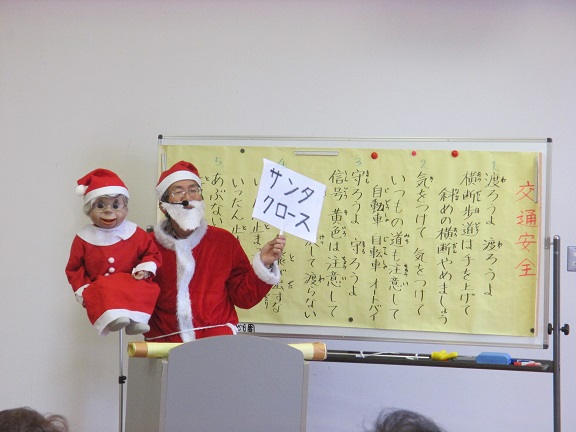 サンタ
クロース
交通安全
1
渡ろうよ 渡ろうよ
横断歩道は手を上げて
斜めの横断やめましょう
2
気をつけて 気をつけて
いつもの道も注意して
自動車 自転車 オートバイ
3
守ろうよ 守ろうよ
信号 黄色は注意して
渡らない
4
5
あぶない
いったん止